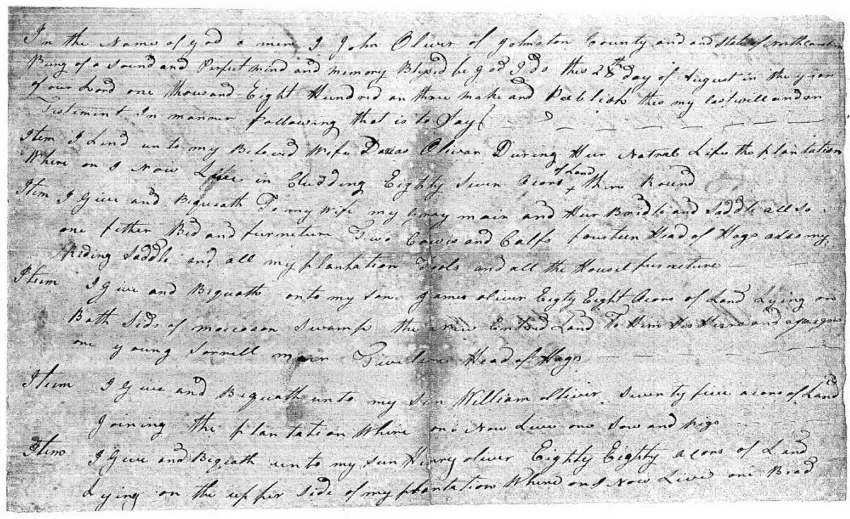 In the Name of god a men I John Oliver of Johnston County and and State of north
Being of a Sound and Perfect mind and memory Blesed be god I do this 28th day of August in the year
of our Lord one thousand Eight Hundred an three make and Publish this my last will and
Testiment In manner following that is to Say
Item I Lend unto my Beloved Wife During Hur Natral Life the plantation
Where on I Now Live in Cludding Eighty Seven Acors of Land + thire Round
Itim I Give and Bequath To my wife my gray main and Hur Bridle and Saddle all so
one fither Bed and furneture Two Cowes and Calfs fourteen Head of Hogs also my
Riding Saddle and all my plantation Tools and all the House furneture
Itum I give and Biquath onto my Son James oliver Eigty Eight Acors of Land Lying on
Both Sids of moccason Swamp the Land To Him His Hirs and
one young Sorrell Head of Hogs
Itum I Give and Biquath unto my Sun William oliver Seventy five acors of Land
Joining the plantation Where on i Now Live one Sow and pigs
Itim I Give and Biqeath unto my Sun Henry oliver Eighty Eighty acors of Land
Lying on the upper Side of my plantation Where on I Now Live one